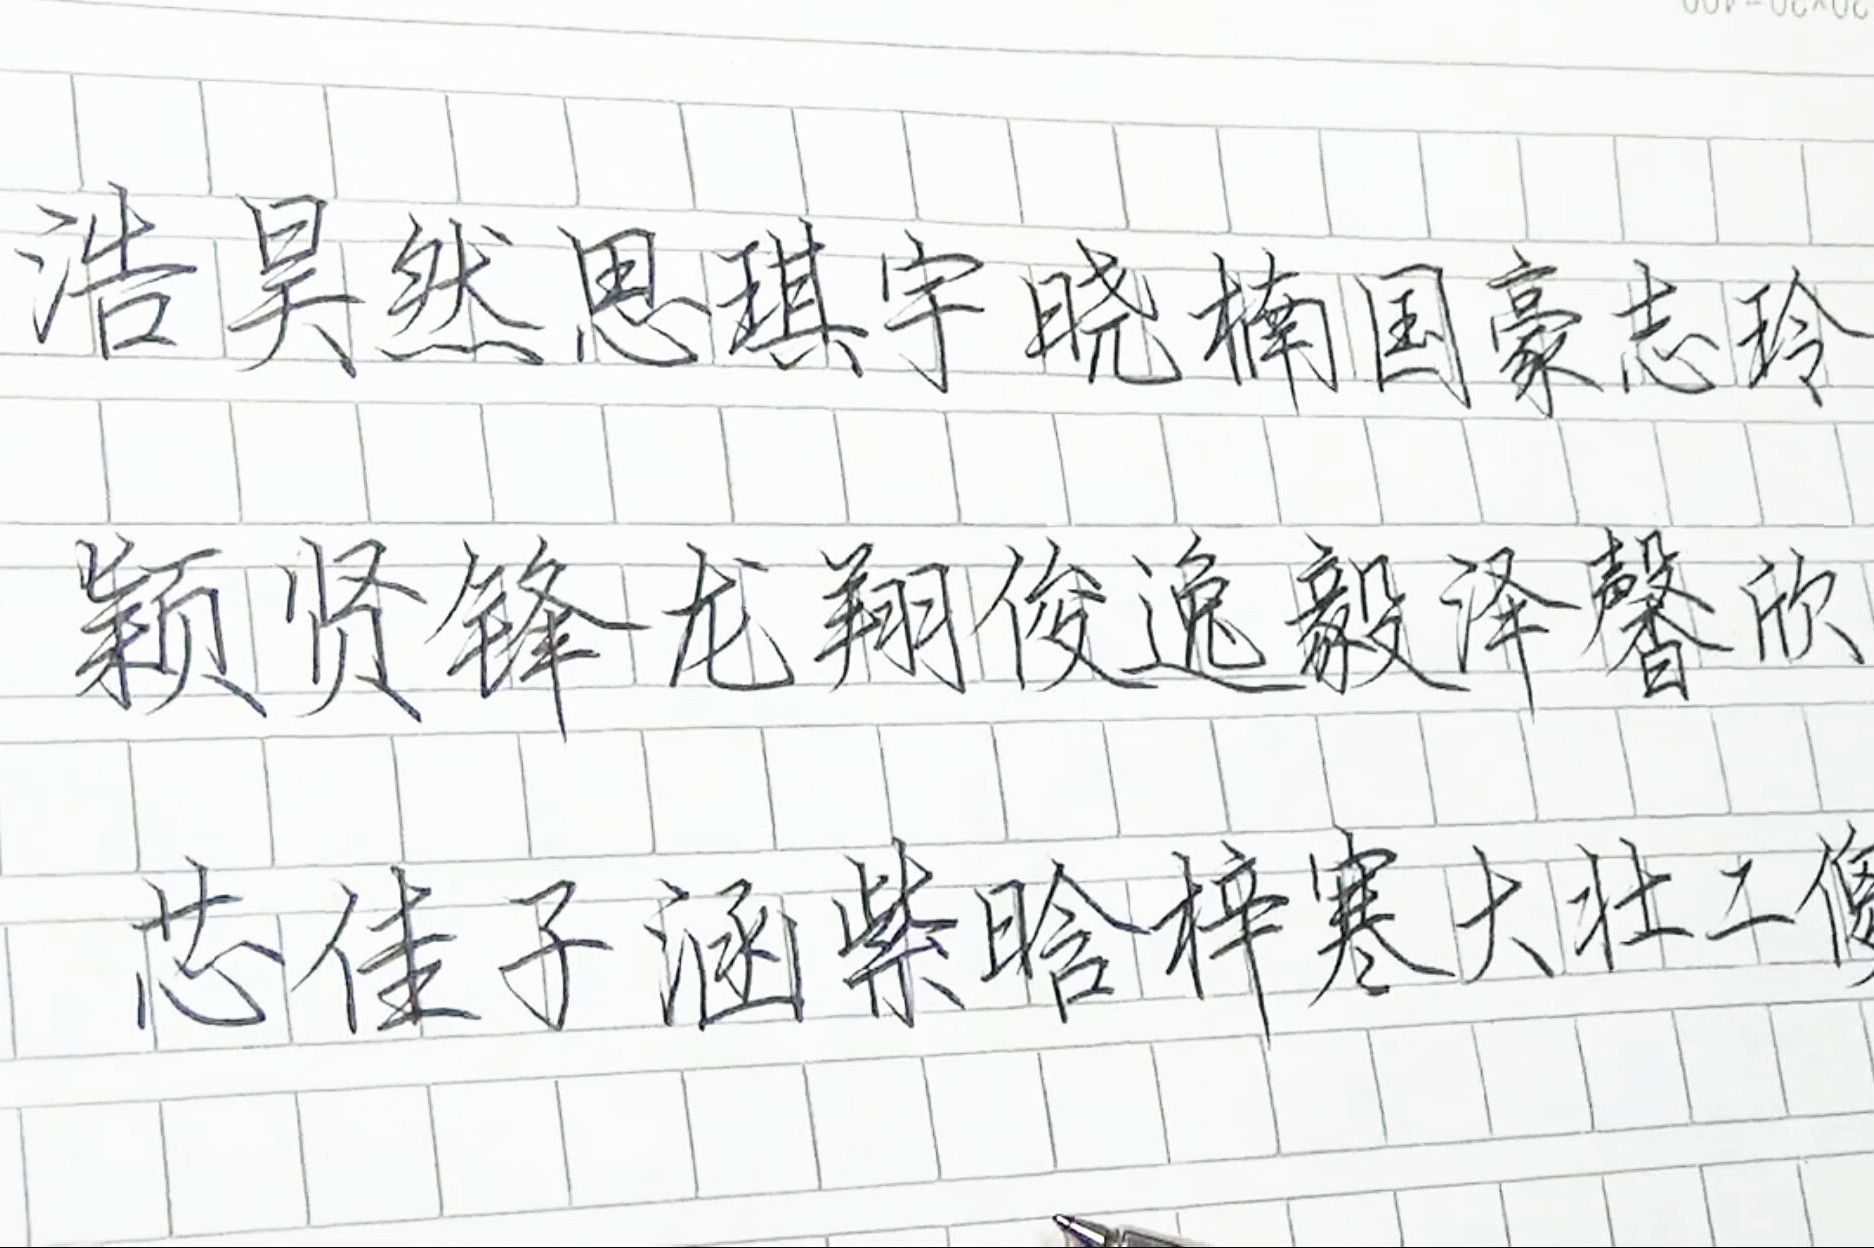 浩昊然思琪宇晓楠国豪志玲
颖贤锋龙翔俊逸毅泽馨欣
芯佳子涵紫晗梓寒大壮二